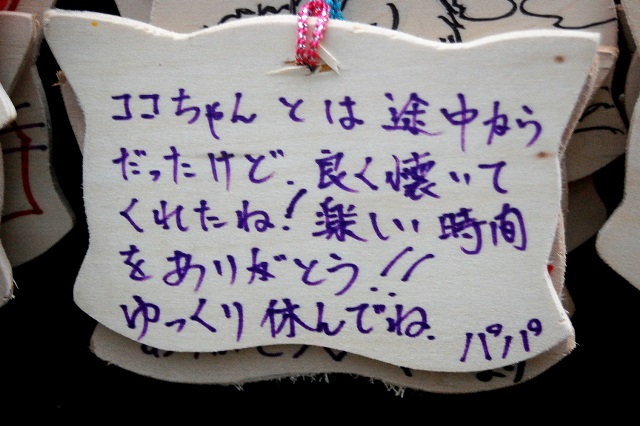 ココちゃんとは途中から
だったけど、良く懐いて
くれたね!楽しい時間
をありがとう!!
ゆっくり休んでね。
パパ